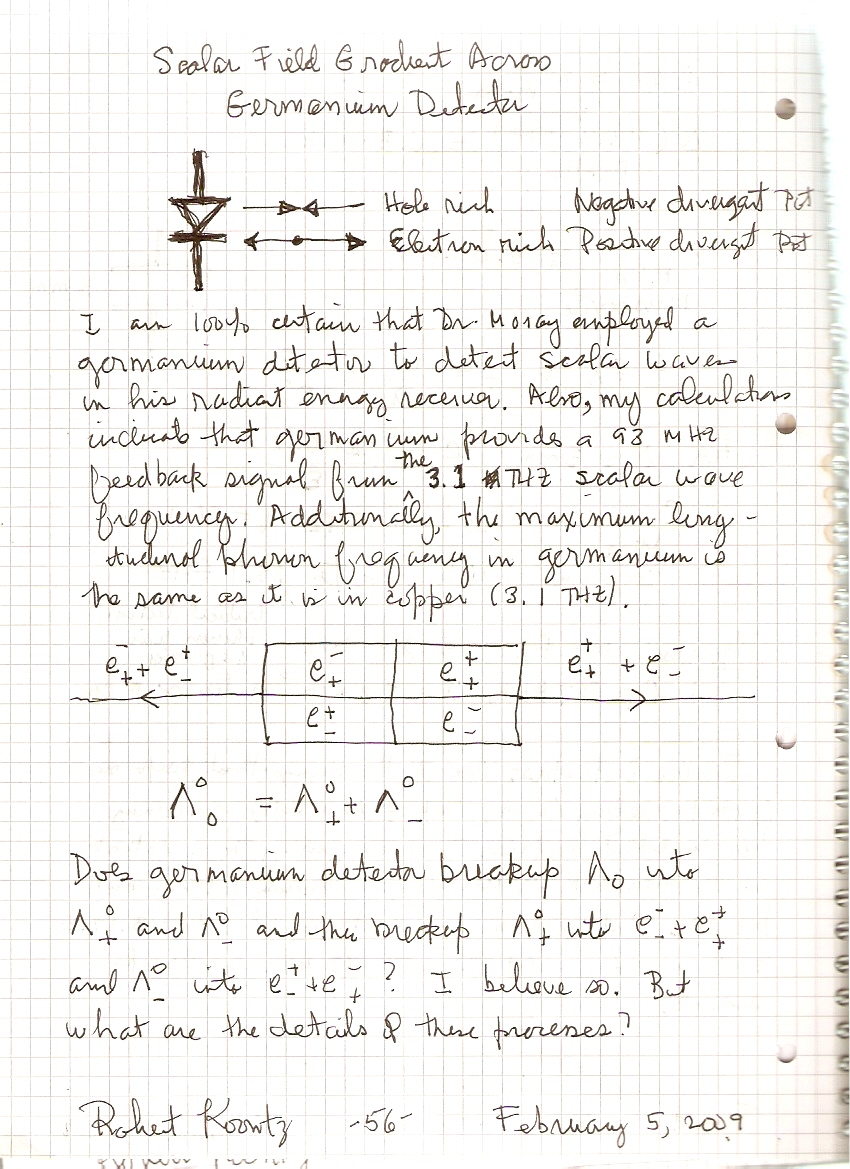 Scalar Field Gradient Across
Germanium Detector
Hole rich Negative divergent Pot
Electron rich Positive divergent Pot
I am 100% certain that Dr. Moray employed a
germanium detetor to detect scalar waves
in his radiat energy receiver. Also, my calculations
indicate that germanium provides a 93 MHz
feedback signal from the 3.1 THZ scalar wave
frequency. Additionally, the maximum long-
itudinal phonon frequency in germanium is
the same as it is in copper (3.1 THZ).
e⁻₊ + e⁺₋ e⁻₊ e⁺₊ e⁺₊ + e⁻₋
e⁺₋ e⁻₋
Λ⁰₀ = Λ⁰₊ + Λ⁰₋
Does germanium detector breakup Λ₀ into
Λ⁰₊ and Λ⁰₋ and then breakup Λ⁰₊ into e⁻₋ + e⁺₊
and Λ⁰₋ into e⁺₋ + e⁻₊? I believe so. But
what are the details of these processes?
Robert Koontz -56- February 5, 2009